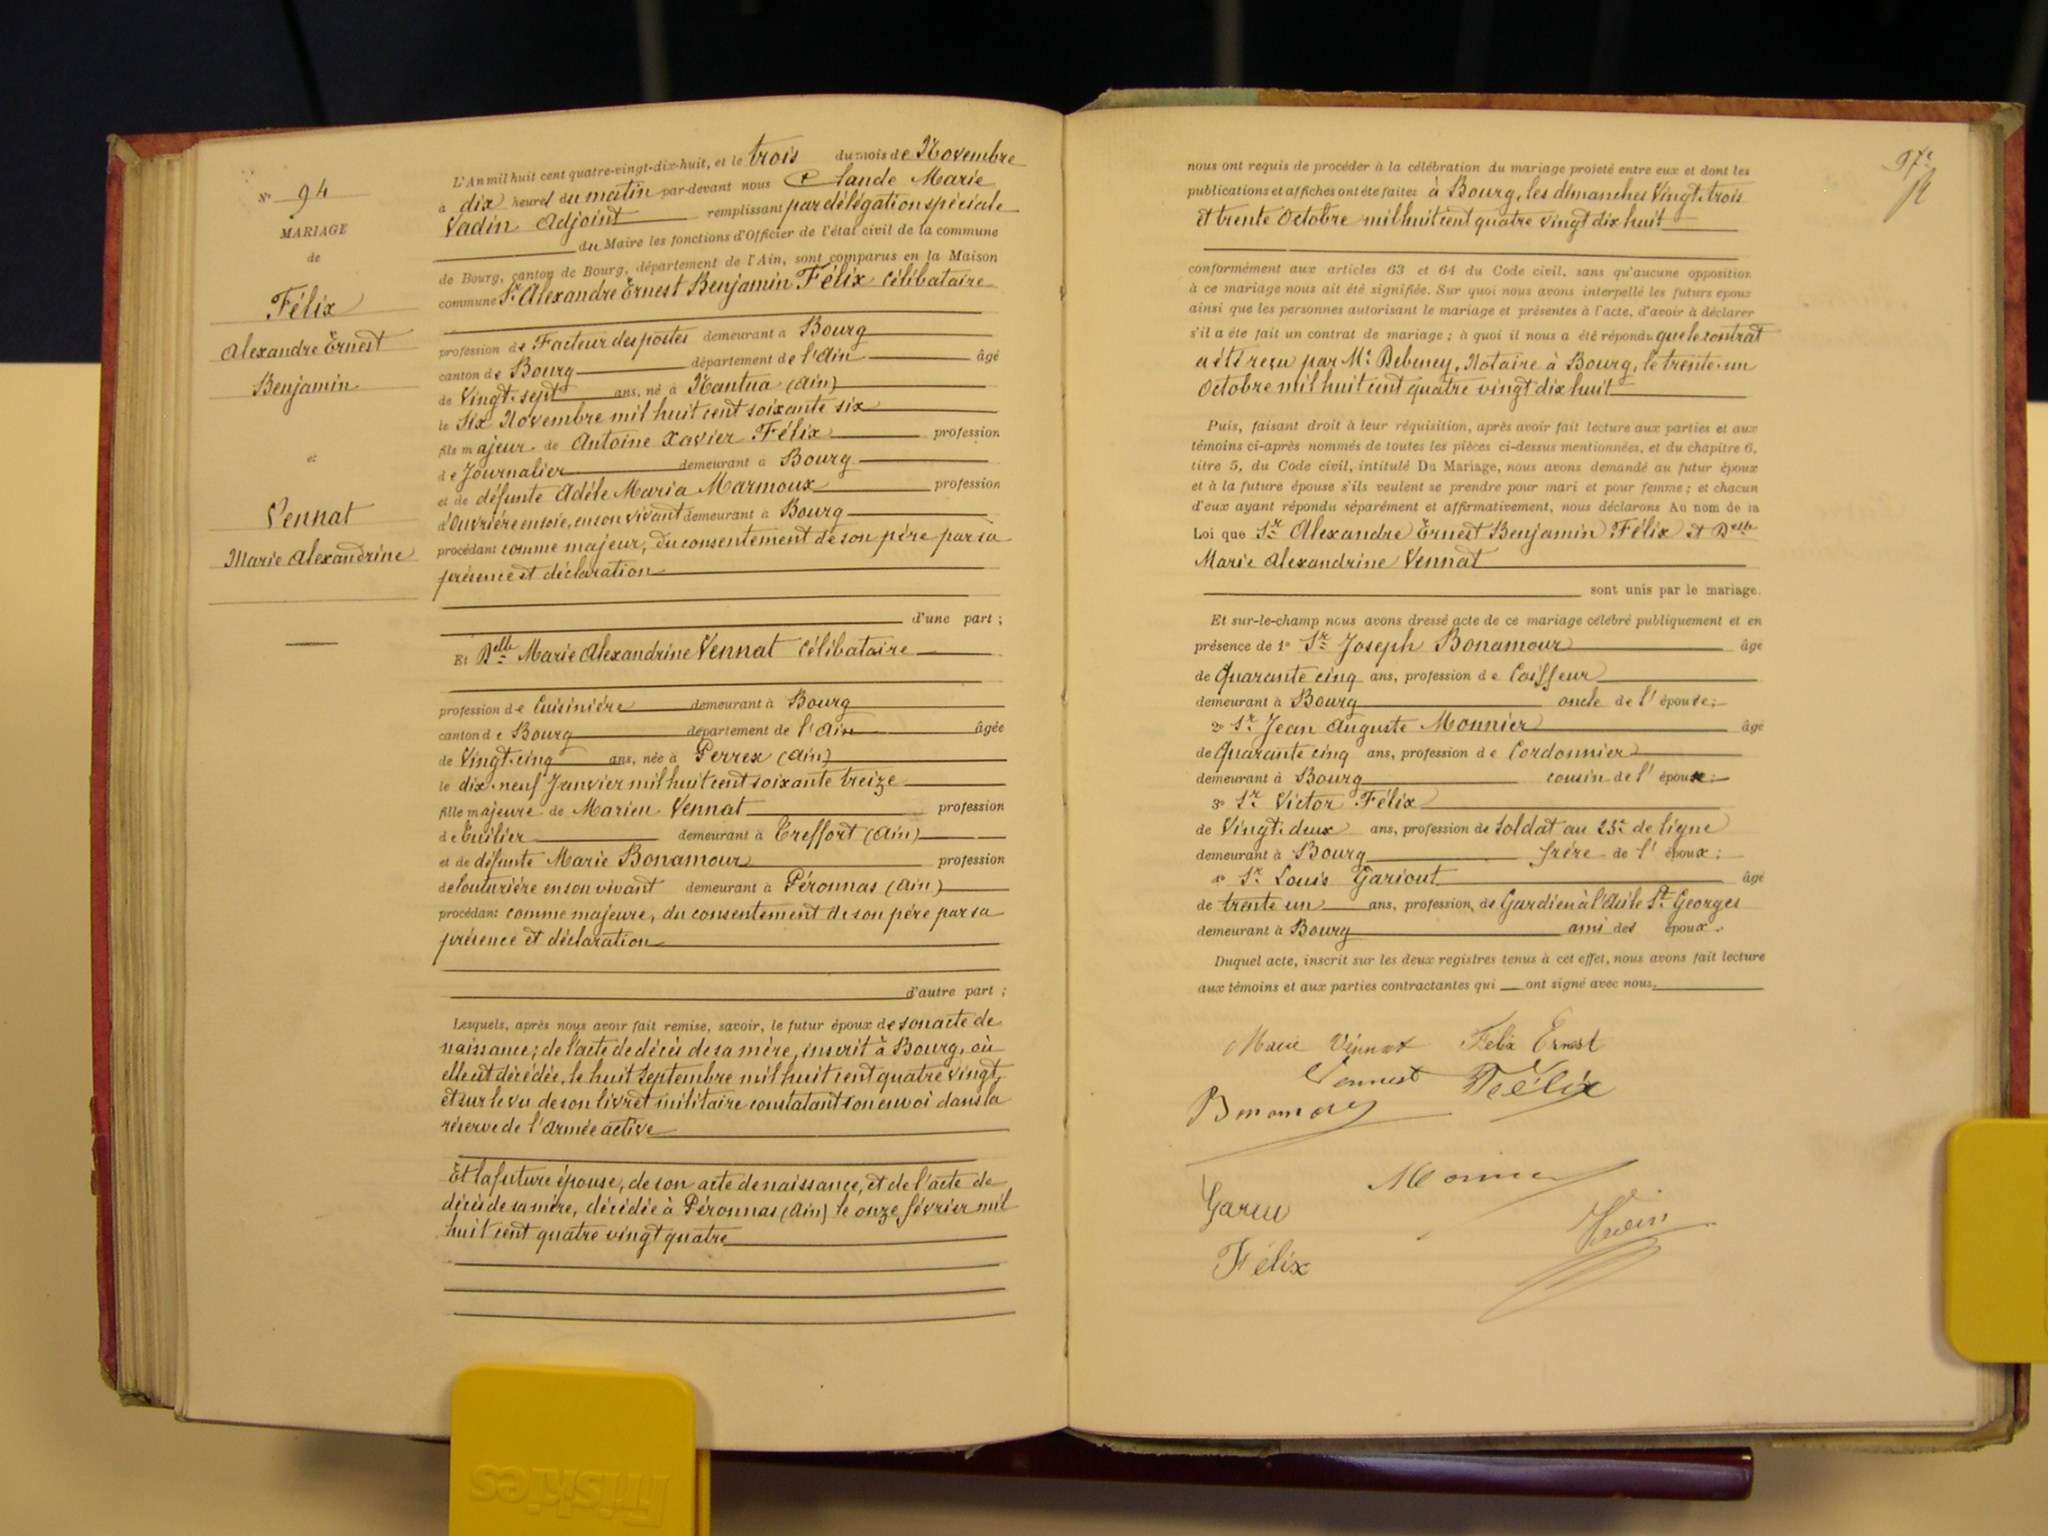 N° 94
MARIAGE
de
Félix
Alexandre Ernest
Benjamin
et
Vennat
Marie Alexandrine
L'An mil huit cent quatre-vingt-dix-huit, et le trois du mois de Novembre
à dix heures du matin par-devant nous Claude Marie
Vadin Adjoint remplissant par délégation spéciale
du Maire les fonctions d'Officier de l'état civil de la commune
de Bourg, canton de Bourg, département de l'Ain, sont comparus en la Maison
commune Sr Alexandre Ernest Benjamin Félix célibataire
profession de Facteur des postes demeurant à Bourg
canton de Bourg département de l'Ain âgé
de Vingt-sept ans, né à Nantua (Ain)
le Six Novembre mil huit cent soixante six
fils majeur de Antoine Xavier Félix profession
de Journalier demeurant à Bourg
et de défunte Adèle Maria Marmoux profession
d'Ouvrière en soie, en son vivant demeurant à Bourg
procédant comme majeur, du consentement de son père par sa
présence et déclaration
d'une part ;
Et Delle Marie Alexandrine Vennat célibataire
profession de Cuisinière demeurant à Bourg
canton de Bourg département de l'Ain âgée
de Vingt-cinq ans, née à Perrex (Ain)
le dix-neuf Janvier mil huit cent soixante treize
fille majeure de Marieu Vennat profession
de Tuilier demeurant à Treffort (Ain)
et de défunte Marie Bonamour profession
de Couturière en son vivant demeurant à Péronnas (Ain)
procédant comme majeure, du consentement de son père par sa
présence et déclaration
d'autre part ;
Lesquels, après nous avoir fait remise, savoir, le futur époux de son acte de
naissance ; de l'acte de décès de sa mère, inscrit à Bourg, où
elle est décédée, le huit Septembre mil huit cent quatre vingt,
et sur le vu de son livret militaire constatant son envoi dans la
réserve de l'armée active
Et la future épouse, de son acte de naissance, et de l'acte de
décès de sa mère, décédée à Péronnas (Ain) le onze février mil
huit cent quatre vingt quatre
97e
nous ont requis de procéder à la célébration du mariage projeté entre eux et dont les
publications et affiches ont été faites à Bourg, les dimanches Vingt-trois
et trente Octobre mil huit cent quatre vingt dix huit
conformément aux articles 63 et 64 du Code civil, sans qu'aucune opposition
à ce mariage nous ait été signifiée. Sur quoi nous avons interpellé les futurs époux
ainsi que les personnes autorisant le mariage et présentes à l'acte, d'avoir à déclarer
s'il a été fait un contrat de mariage ; à quoi il nous a été répondu que le contrat
a été reçu par Me Debeney, Notaire à Bourg, le trente-un
Octobre mil huit cent quatre vingt dix huit
Puis, faisant droit à leur réquisition, après avoir fait lecture aux parties et aux
témoins ci-après nommés de toutes les pièces ci-dessus mentionnées, et du chapitre 6,
titre 5, du Code civil, intitulé Du Mariage, nous avons demandé au futur époux
et à la future épouse s'ils veulent se prendre pour mari et pour femme ; et chacun
d'eux ayant répondu séparément et affirmativement, nous déclarons Au nom de la
Loi que Sr Alexandre Ernest Benjamin Félix et Delle
Marie Alexandrine Vennat
sont unis par le mariage.
Et sur-le-champ nous avons dressé acte de ce mariage célébré publiquement et en
présence de 1° Sr Joseph Bonamour âgé
de Quarante cinq ans, profession de Coiffeur
demeurant à Bourg oncle de l'épouse ;
2° Sr Jean Auguste Monnier âgé
de Quarante cinq ans, profession de Cordonnier
demeurant à Bourg cousin de l'époux ;
3° Sr Victor Félix
de Vingt-deux ans, profession de Soldat au 23e de ligne
demeurant à Bourg frère de l'époux ;
4° Sr Louis Gariout âgé
de trente un ans, profession de Gardien à l'Asile St Georges
demeurant à Bourg ami des époux.
Duquel acte, inscrit sur les deux registres tenus à cet effet, nous avons fait lecture
aux témoins et aux parties contractantes qui ont signé avec nous.
Marie Vennat Felix Ernest
Vennat Félix
Bonamour
Monnier
Félix
Vadin
friskies